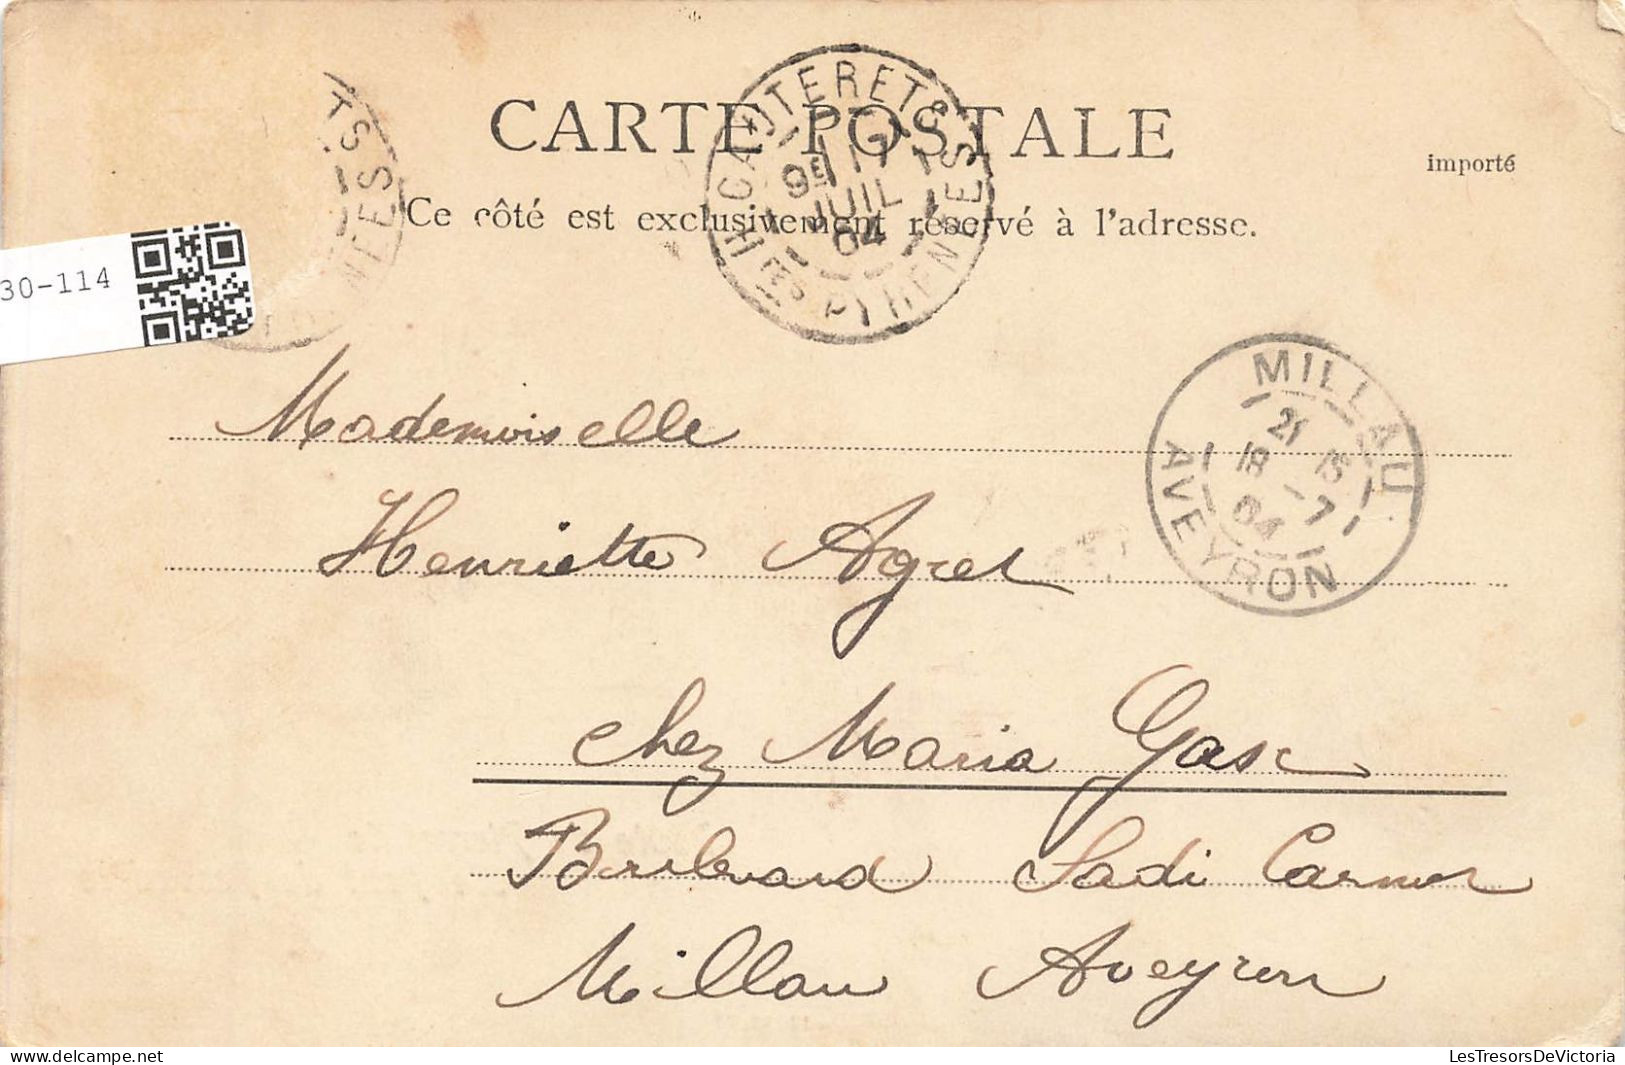 CARTE POSTALE
importé
Ce côté est exclusivement réservé à l'adresse.
CAUTERETS
9E 17
JUIL
04
HTES PYRENEES
TS
NEES
30-114
MILLAU
21 15
18 -7
04
AVEYRON
Mademoiselle
Henriette Agret
chez Maria Gasc
Boulevard Sadi Carnot
Millau Aveyron
LesTresorsDeVictoria